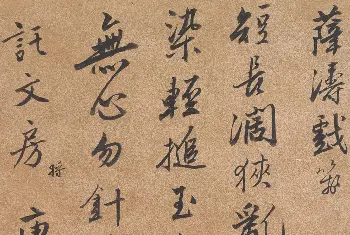 薛濤戲
短長濶狹亂
染輕搥玉
無心勿針
託文房